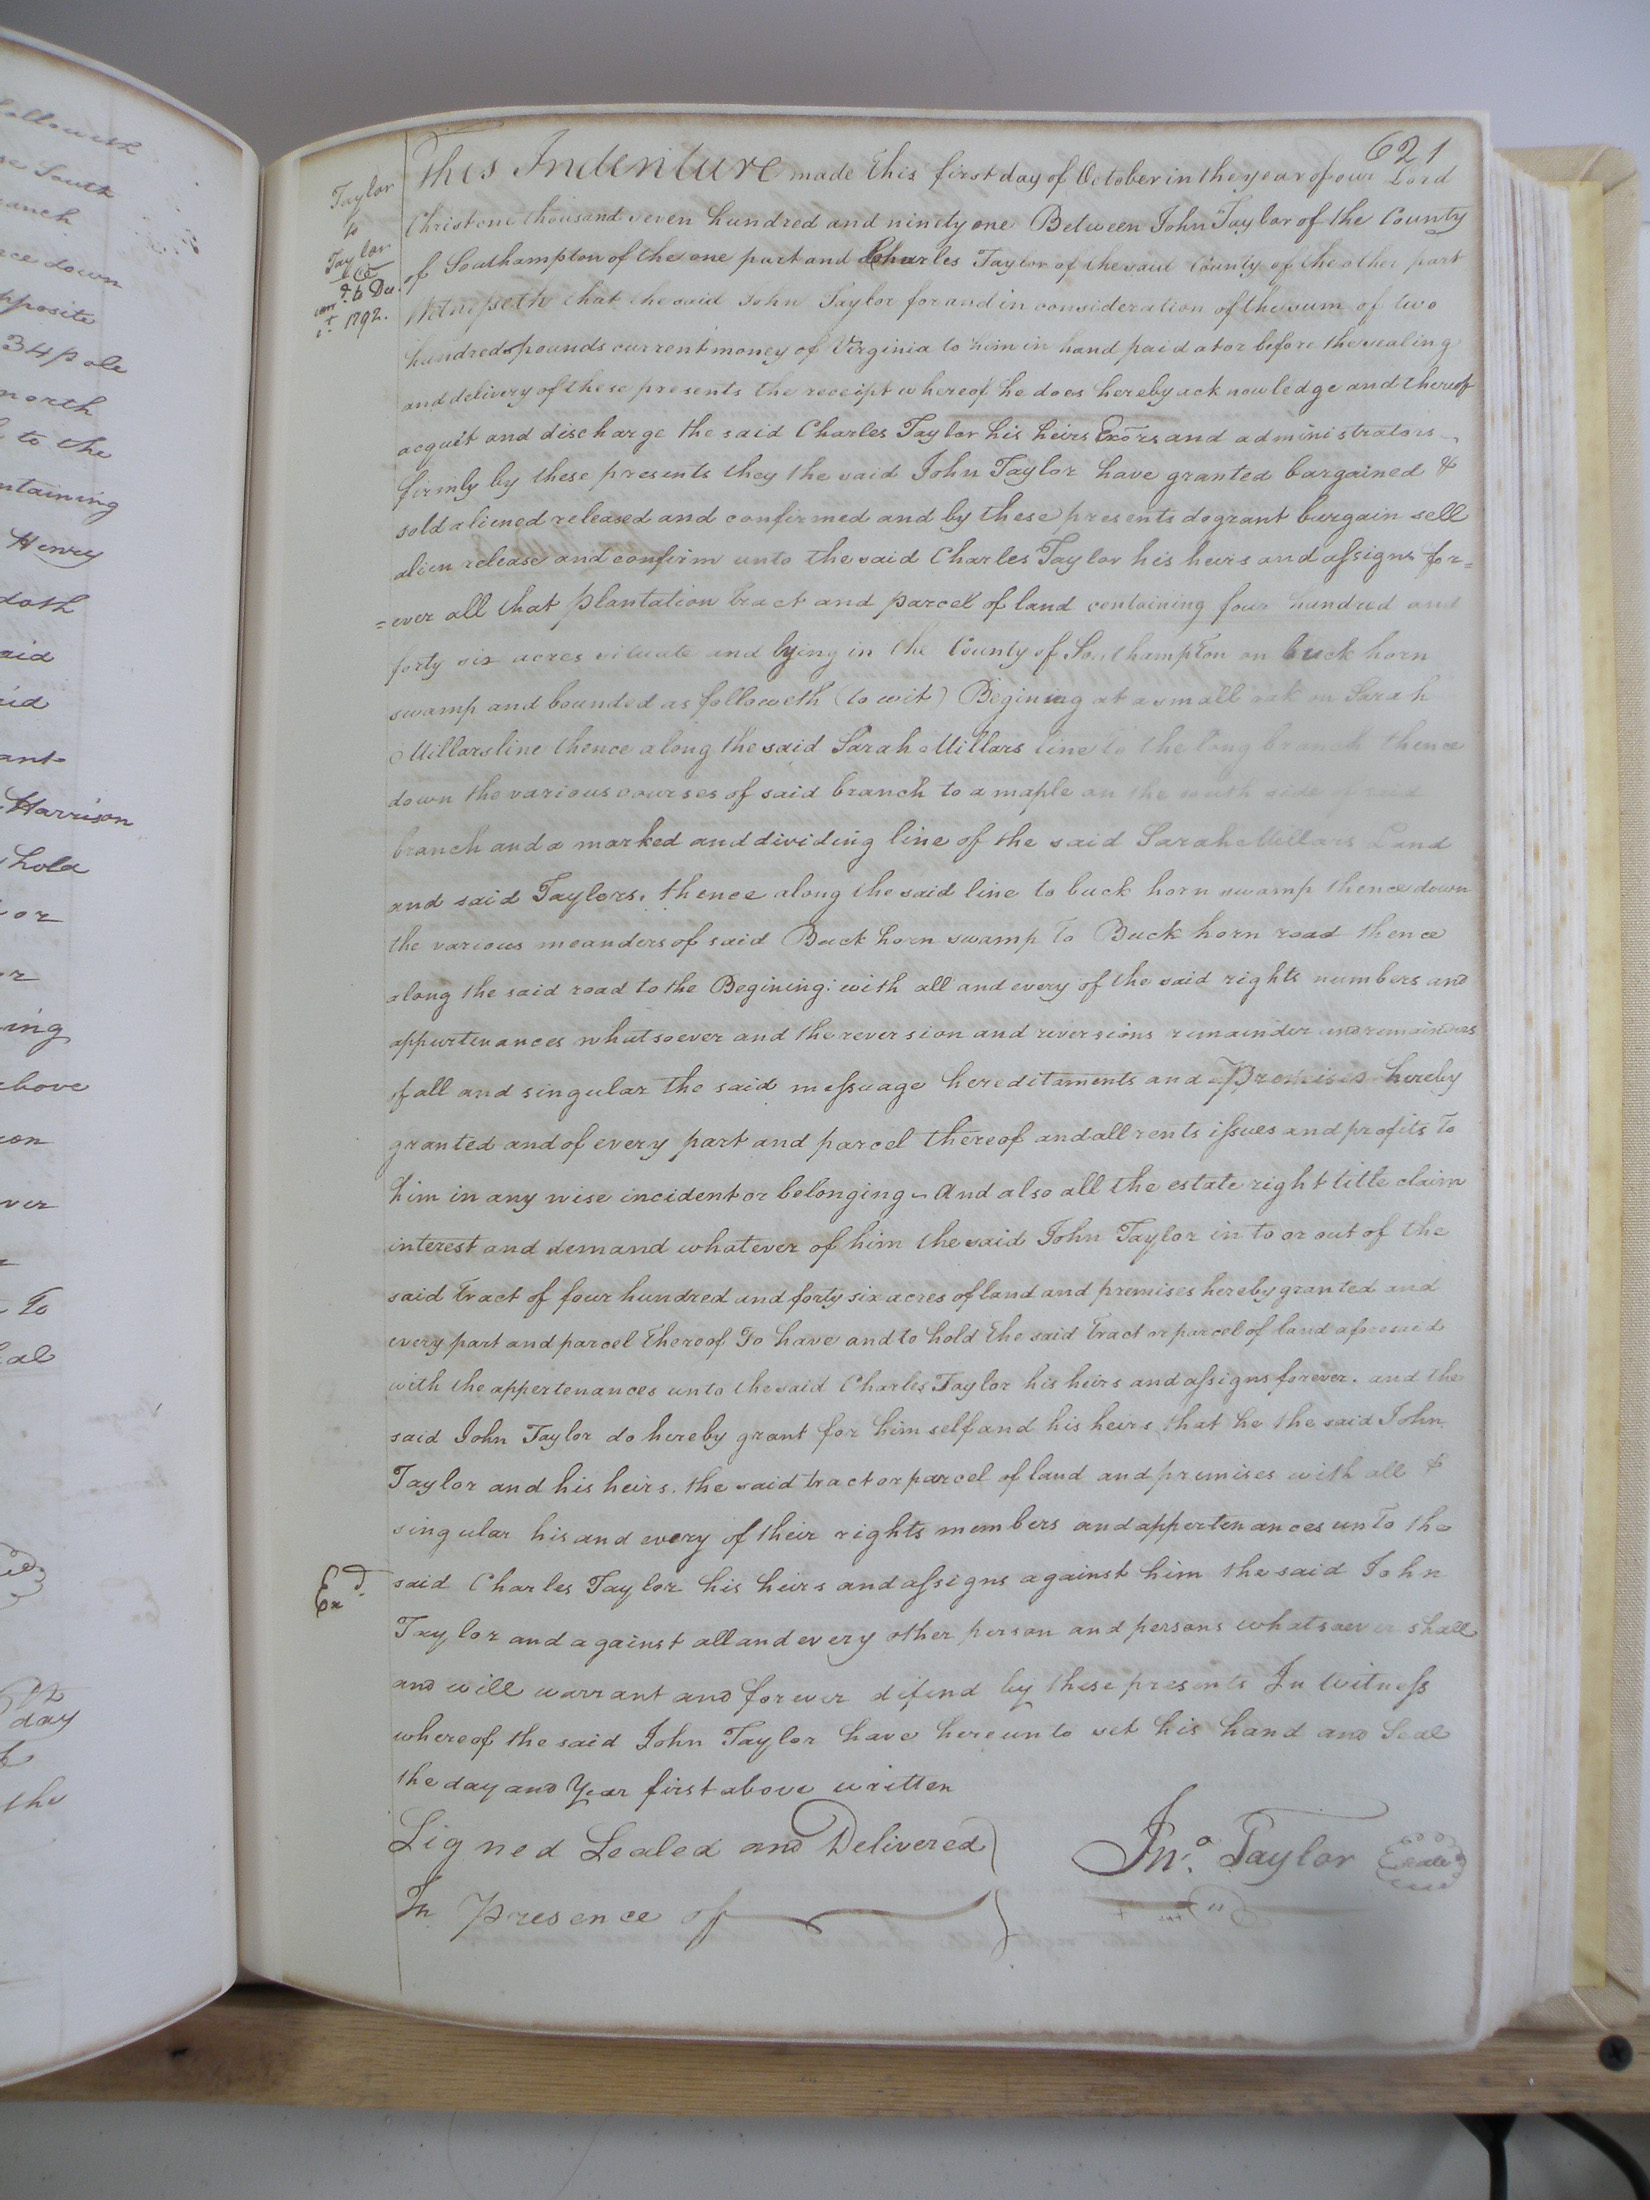 ollowith
se South
ranch
nce down
pposite
34 pole
north
to the
ntaining
Henry
doth
aid
aid
ant
Harrison
hold
or
or
ing
above
ion
ver
To
eal
day
the
621
Taylor
to
Taylor
1792.
This Indenture made this first day of October in the year of our Lord
Christ one thousand seven hundred and ninety one Between John Taylor of the County
of Southampton of the one part and Charles Taylor of the said County of the other part
Witnesseth that the said John Taylor for and in consideration of the sum of two
hundred pounds current money of Virginia to him in hand paid at or before the sealing
and delivery of these presents the receipt whereof he does hereby acknowledge and thereof
acquit and discharge the said Charles Taylor his heirs Exors and administrators
firmly by these presents they the said John Taylor have granted bargained &
sold aliened released and confirmed and by these presents do grant bargain sell
alien release and confirm unto the said Charles Taylor his heirs and assigns for=
=ever all that plantation tract and parcel of land containing four hundred and
forty six acres situate and lying in the County of Southampton on buck horn
swamp and bounded as followeth (to wit) Begining at a small oak on Sarah
Millars line thence along the said Sarah Millars line to the long branch thence
down the various courses of said branch to a maple on the south side of said
branch and a marked and dividing line of the said Sarah Millars Land
and said Taylors, thence along the said line to buck horn swamp thence down
the various meanders of said Buck horn swamp to Buck horn road thence
along the said road to the Begining: with all and every of the said rights numbers and
appurtenances whatsoever and the reversion and reversions remainder and remainders
of all and singular the said messuage hereditaments and Premises hereby
granted and of every part and parcel thereof and all rents issues and profits to
him in any wise incident or belonging. And also all the estate right title claim
interest and demand whatever of him the said John Taylor in to or out of the
said tract of four hundred and forty six acres of land and premises hereby granted and
every part and parcel thereof To have and to hold the said tract or parcel of land aforesaid
with the appertenances unto the said Charles Taylor his heirs and assigns forever. and the
said John Taylor do hereby grant for him self and his heirs that he the said John
Taylor and his heirs. the said tract or parcel of land and premises with all &
singular his and every of their rights members and appertenances unto the
Exd. said Charles Taylor his heirs and assigns against him the said John
Taylor and against all and every other person and persons whatsoever shall
and will warrant and forever defend by these presents In Witness
whereof the said John Taylor have hereunto set his hand and Seal
the day and Year first above written
Signed Sealed and Delivered)
In Presence of )
Jno. Taylor Seal